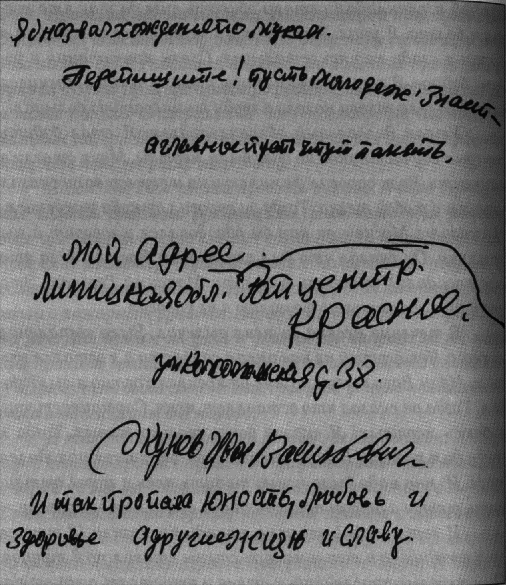 Я б назвал хождения по мукам.
Перепишите! пусть молодеж! Знает-
а главное пусть чтут память,
мой Адрес.
Липицкая обл. центр.
Красное.
ул д 38.
Окунев Василевич
И так пропала юность, любовь и
Здоровье а другие жизнь и славу.